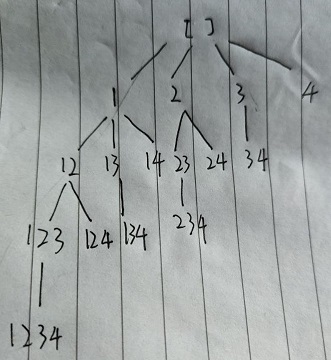 [ ]
1 2 3 4
12 13 14 23 24 34
123 124 134 234
1234